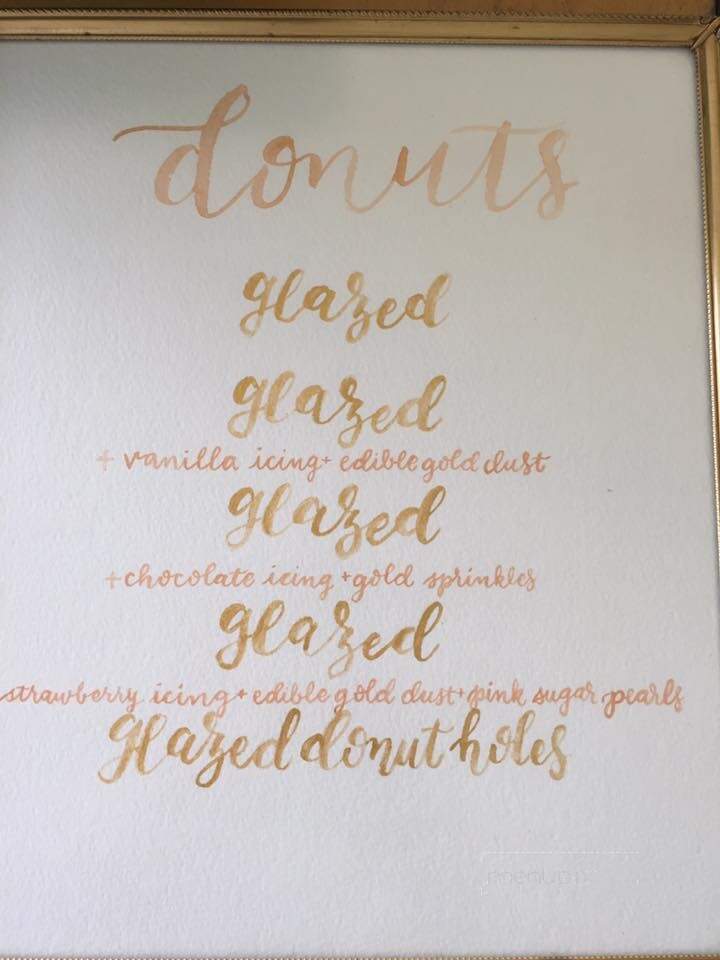 donuts
glazed
glazed
+ vanilla icing + edible gold dust
glazed
+ chocolate icing + gold sprinkles
glazed
strawberry icing + edible gold dust + pink sugar pearls
glazed donut holes